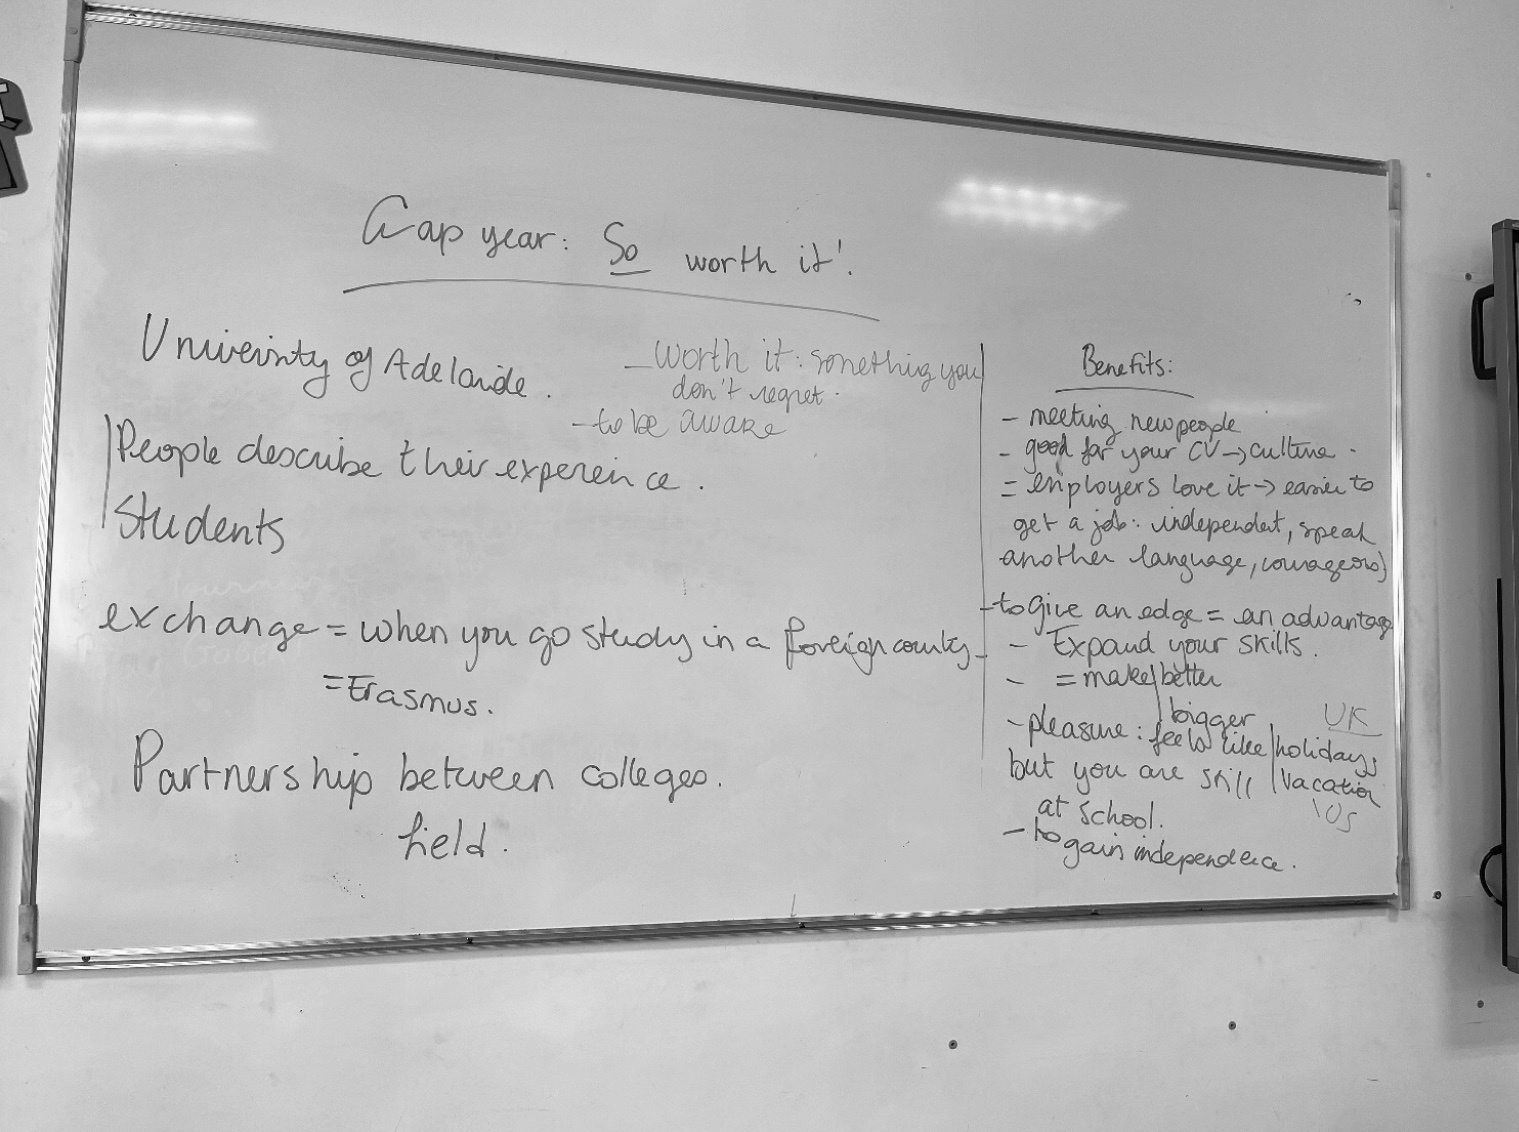 Gap year: So worth it!
University of Adelaide.
- worth it: something you
don't regret.
- to be aware
People describe their experience.
Students
exchange = when you go study in a foreign county
= Erasmus.
Partnership between colleges.
field.
Benefits:
- meeting new people
- good for your CV → culture.
= employers love it → easier to
get a job: independent, speak
another language, courageous)
- to give an edge = an advantage
- Expand your skills.
- = make better
bigger
- pleasure: feels like holidays UK
but you are still vacation
US
at school.
- to gain independence.